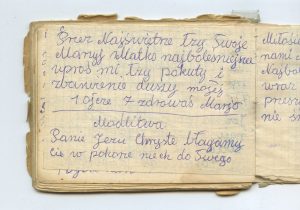 Przez Najświętrze Łzy Twoje
Maryjo Matko najboleśniejsza
uproś mi łzy pokuty i
zbawienie duszy mojej
1 Ojcze 7 zdrowaś Marjo
Modlitwa
Panie Jezu Chryste błagamy
Cię w pokorze niech do Twego
Miłosie
nami
Najbo
wraz
prze
nas